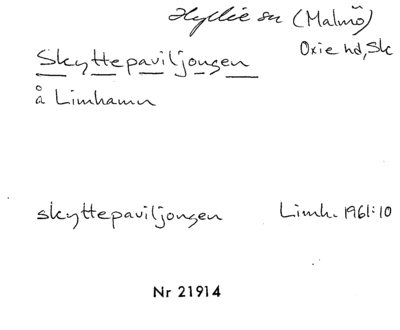 Hyllie sn (Malmö)
Oxie hd, Sk
Skyttepaviljongen
å Limhamn
skyttepaviljongen Limh. 1961:10
Nr 21914